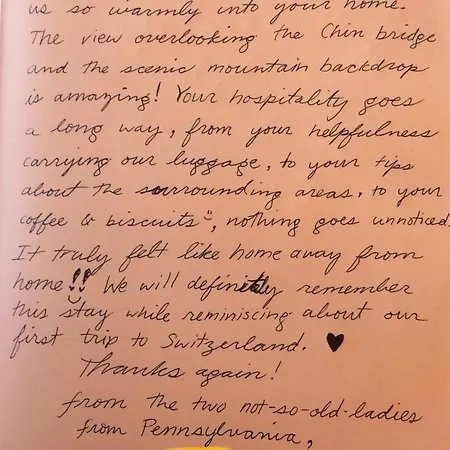 us so warmly into your home.
The view overlooking the Chin bridge
and the scenic mountain backdrop
is amazing! Your hospitality goes
a long way, from your helpfulness
carrying our luggage, to your tips
about the surrounding areas, to your
coffee & biscuits, nothing goes unnoticed.
It truly felt like home away from
home!! We will definitely remember
this stay while reminiscing about our
first trip to Switzerland. ♥
Thanks again!
from the two not-so-old-ladies
from Pennsylvania,